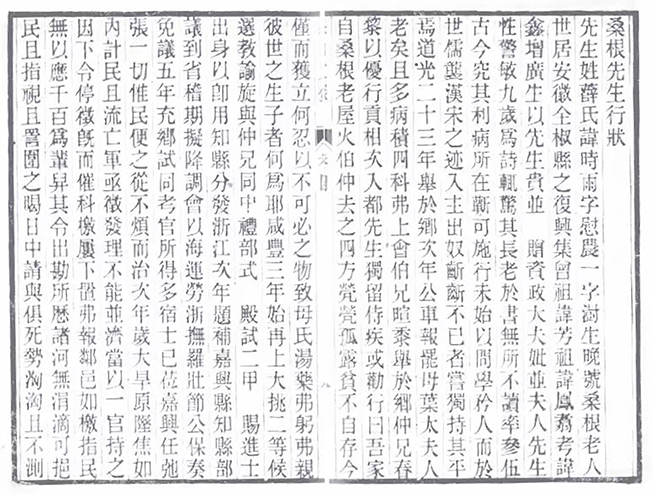 桑根先生行狀
先生姓薛氏諱時雨字慰農一字澍生晚號桑根老人
世居安徽全椒縣之復興集曾祖諱芳祖諱鳳翥考諱
鑫增廣生以先生貴並　贈資政大夫妣並夫人先生
性警敏九歲爲詩輒驚其長老於書無所不讀率參伍
古今究其利病所在蘄可施行未始以問學矜人而於
世儒襲漢宋之迹入主出奴齗齗不已者嘗獨持其平
焉道光二十三年舉於鄉次年公車報罷母葉太夫人
老矣且多病積四科弗上會伯兄暄黍舉於鄉仲兄春
黎以優行貢相次入都先生獨留侍疾或勸行曰吾家
自桑根老屋火伯仲去之四方煢煢孤露貧不自存今
僅而獲立何忍以不可必之物致母氏湯藥弗躬弗親
彼世之生子者何爲耶咸豐三年始再上大挑二等候
選教諭旋與仲兄同中禮部式　殿試二甲　賜進士
出身以卽用知縣分發浙江次年題補嘉興縣知縣部
議到省稽期擬降調會以海運勞浙撫羅壯節公保奏
免議五年充鄉試同考官所得多宿士已莅嘉興任弛
張一切惟民便之從不煩而治次年歲大旱原隰焦如
內計民且流亡軍亟徵發理不能並濟當以一官持之
因下令停徵旣而催科檄屢下置弗報鄰邑如檄指民
無以應千百爲羣舁其令出勘所歷諸河無涓滴可挹
民且指視且詈圍之暍日中請與俱死勢洶洶且不測